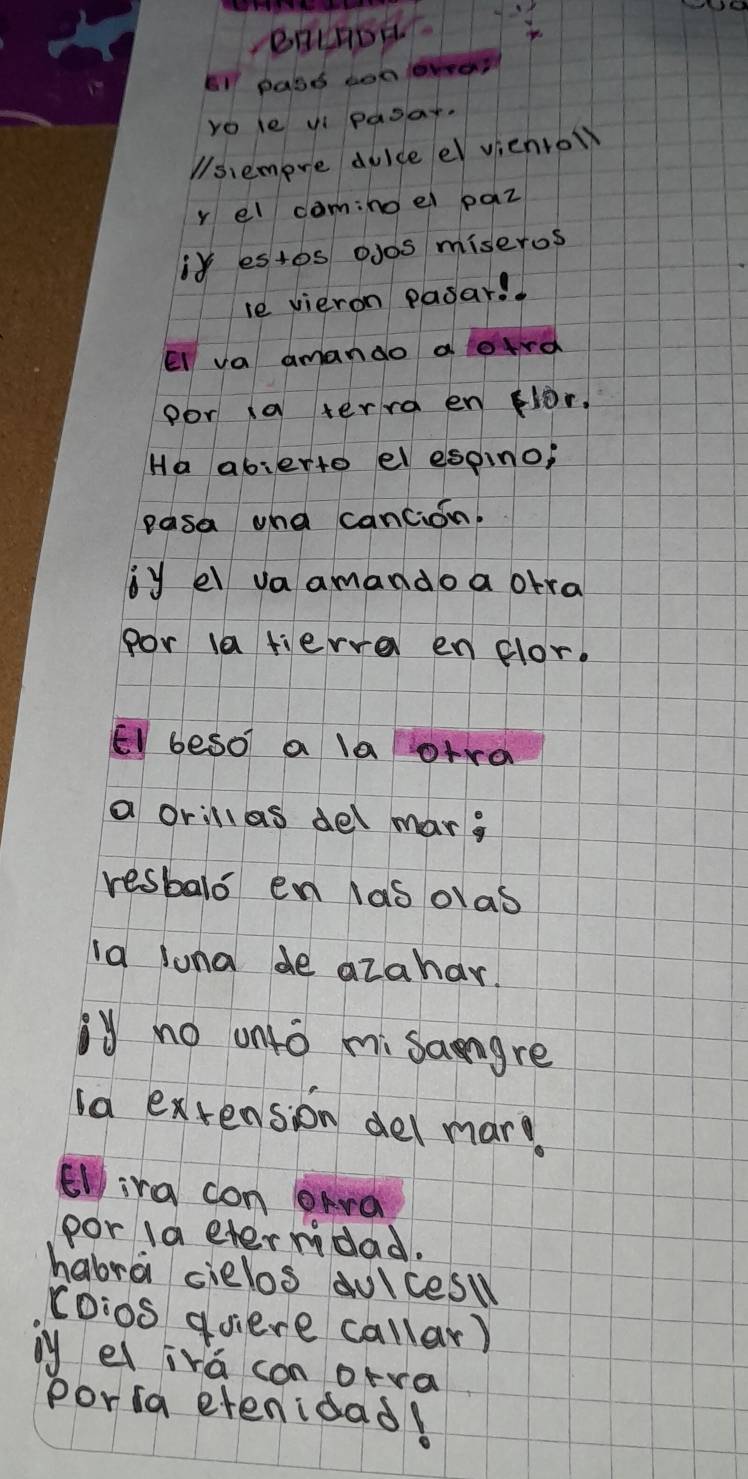 BALADA
El pasó con otra;
yo le vi pasar.
//siempre dulce el viento\\
y el camino el paz
¡y estos ojos míseros
le vieron pasar!.
El va amando a otra
por la terra en flor.
Ha abierto el espino;
pasa una canción.
¡y el va amando a otra
por la tierra en flor.
El besó a la otra
a orillas del mar;
resbaló en las olas
la luna de azahar.
¡y no untó mi sangre
la extensión del mar!.
El ira con otra
por la eternidad.
habrá cielos dulces\\
(Dios quiere callar)
¡y el irá con otra
por la etenidad!